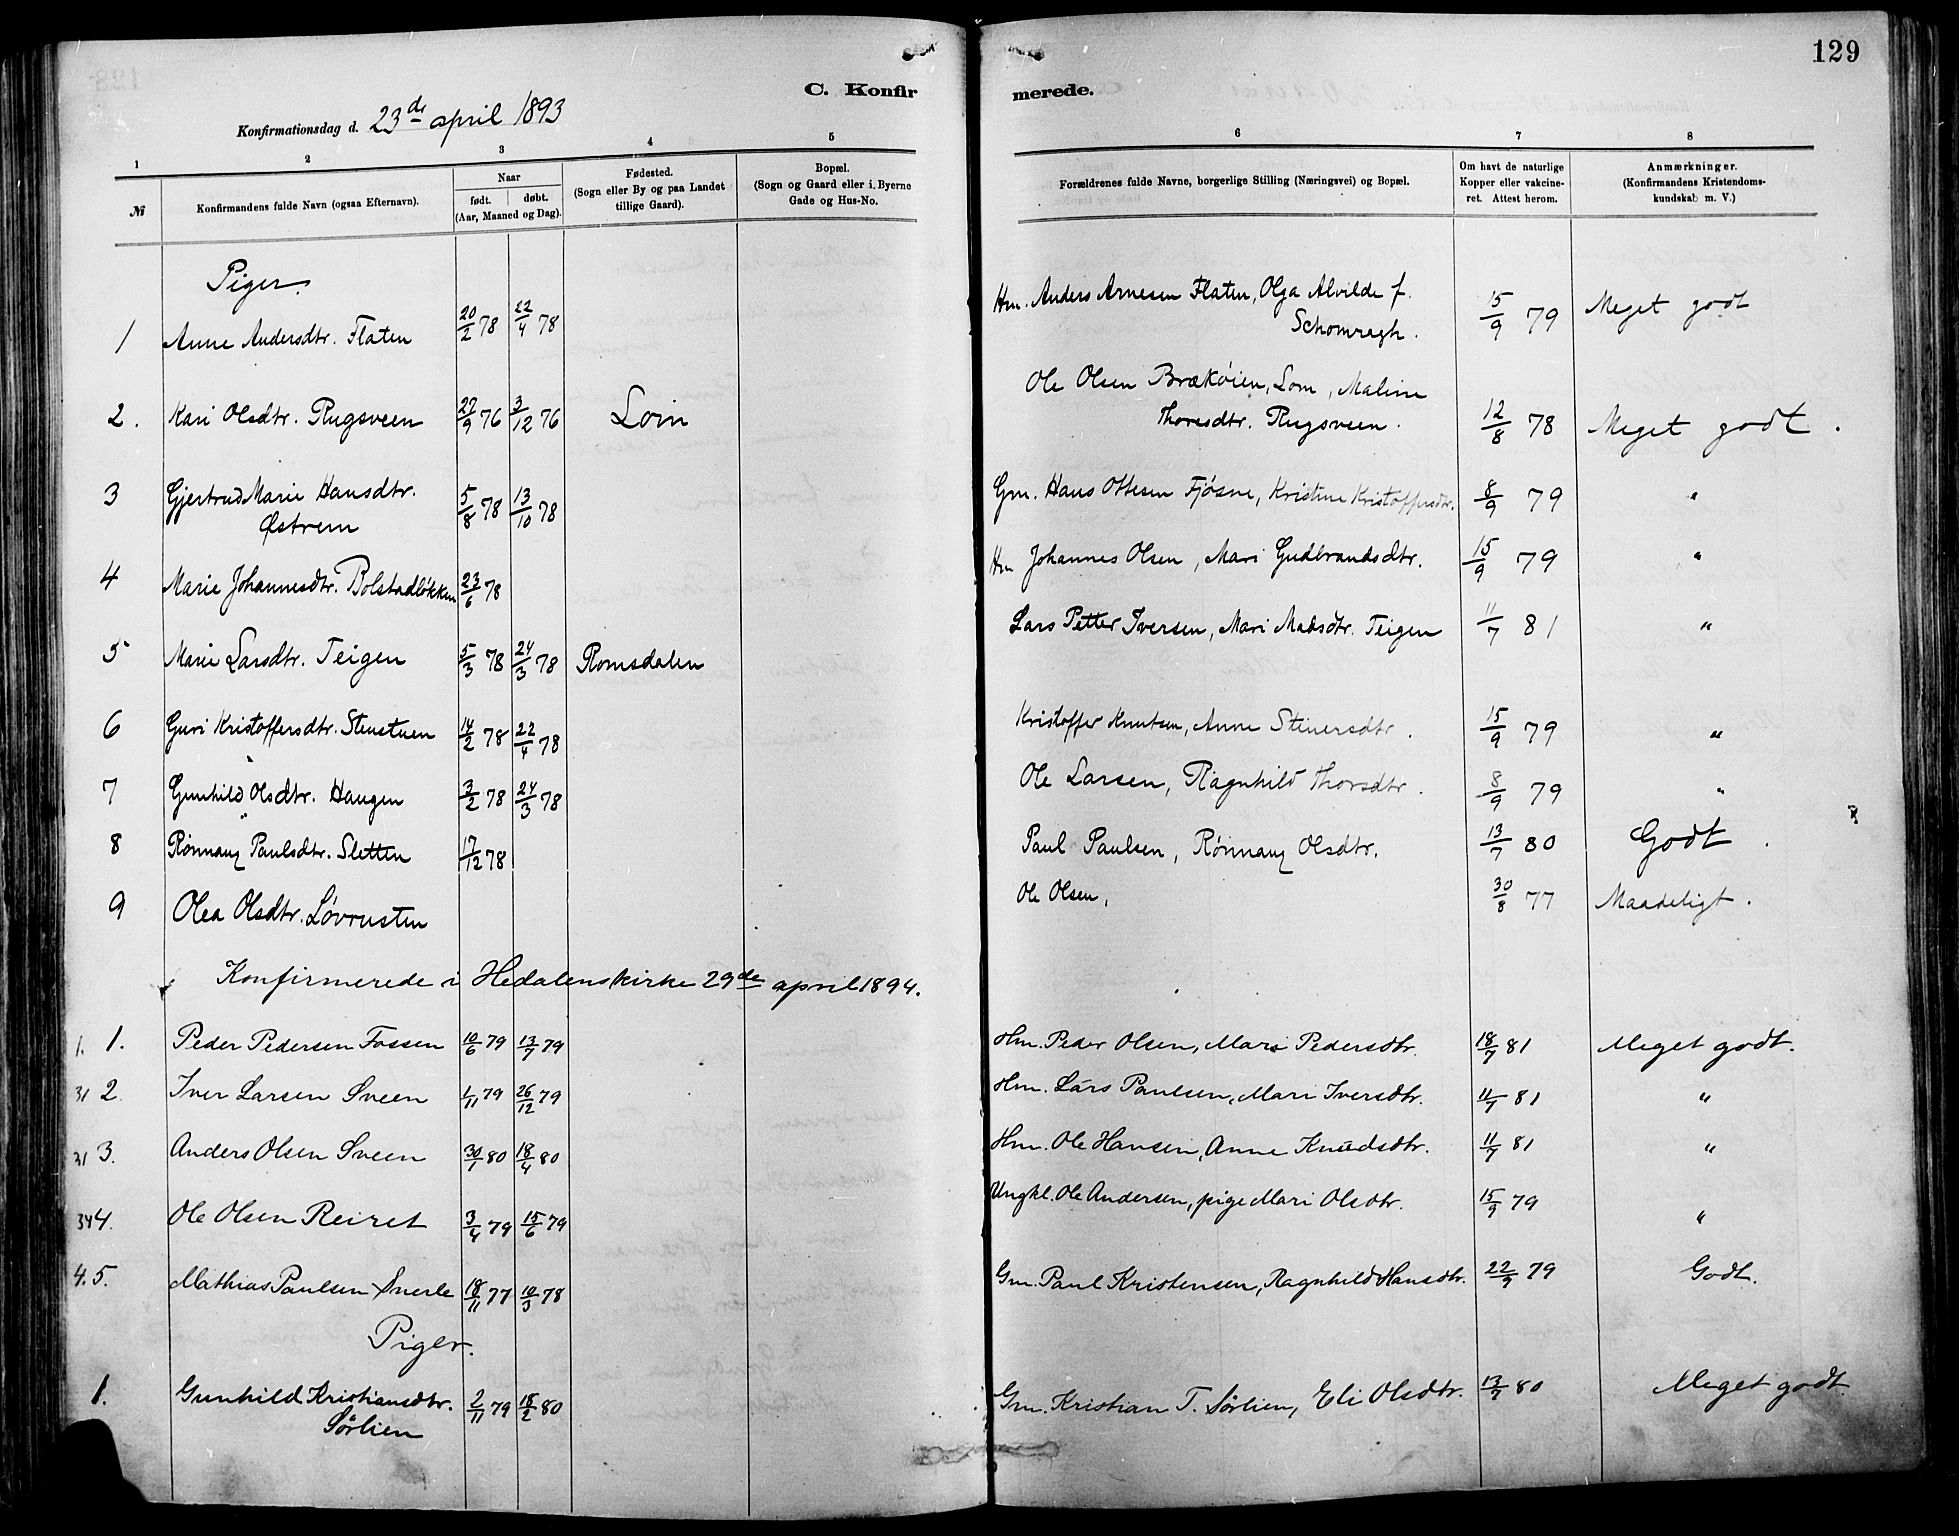 129
C. Konfirmerede.
Konfirmationsdag d. 23de april 1893
1 2 3 4 5 6 7 8
№ Konfirmandens fulde Navn (ogsaa Efternavn). Naar født. døbt. (Aar, Maaned og Dag). Fødested. (Sogn eller By og paa Landet tillige Gaard). Bopæl. (Sogn og Gaard eller i Byerne Gade og Hus-No. Forældrenes fulde Navne, borgerlige Stilling (Næringsvei) og Bopæl. Om havt de naturlige Kopper eller vakcineret. Attest herom. Anmærkninger. (Konfirmandens Kristendomskundskab m. V.)
Piger.
1 Anne Andersdtr. Flaten 20/2 78 22/4 78 Hm. Anders Arnesen Flaten, Olga Alvilde f. 15/9 79 Meget godt
Schomragh.
2. Kari Olsdtr. Rugsveen 29/9 76 3/12 76 Lom Ole Olsen Brækøien, Lom, Maline
Thoresdtr. Rugsveen. 12/8 78 Meget godt.
3 Gjertrud Marie Hansdtr. 5/8 78 13/10 78 Gm. Hans Ottesen Fjøsne, Kristine Kristoffersdtr. 8/9 79 "
Østrem
4 Marie Johannesdtr. Bolstadløkken 23/6 78 Hm Johannes Olsen, Mari Gudbrandsdtr. 15/9 79 "
5 Marie Larsdtr. Teigen 5/3 78 24/3 78 Romsdalen Lars Petter Iversen, Mari Madsdtr. Teigen 11/7 81 "
6 Guri Kristoffersdtr. Stenstuen 14/2 78 22/4 78 Kristoffer Knutsen, Anne Steinersdtr. 15/9 79 "
7 Gunhild Olsdtr. Haugen 3/2 78 24/3 78 Ole Larsen, Ragnhild Thorsdtr. 8/9 79 "
8 Rønnaug Paulsdtr. Sletten 17/12 78 Paul Paulsen, Rønnaug Olsdtr. 13/7 80 Godt.
9 Olea Olsdtr. Løvrusten Ole Olsen, 30/8 77 Maadeligt.
Konfirmerede i Hedalens kirke 29de april 1894.
1. 1. Peder Pedersen Fossen 10/6 79 13/7 79 Hm. Peder Olsen, Mari Pedersdtr. 18/7 81 Meget godt.
31 2. Iver Larsen Sveen 1/11 79 26/12 79 Hm. Lars Paulsen, Mari Iversdtr. 11/7 81 "
31 3. Anders Olsen Sveen 30/1 80 18/4 80 Hm. Ole Hansen, Anne Knudsdtr. 11/7 81 "
34 4. Ole Olsen Reiret 3/4 79 15/6 79 Ungkl. Ole Andersen, pige Mari Olsdtr. 15/9 79 "
4. 5. Mathias Paulsen Snerle 18/11 77 10/3 78 Gm. Paul Kristensen, Ragnhild Hansdtr. 22/9 79 Godt.
Piger.
1. Gunhild Kristiansdtr. 2/11 79 18/2 80 Gm. Kristian T. Sørlien, Eli Olsdtr. 13/7 80 Meget godt.
Sørlien